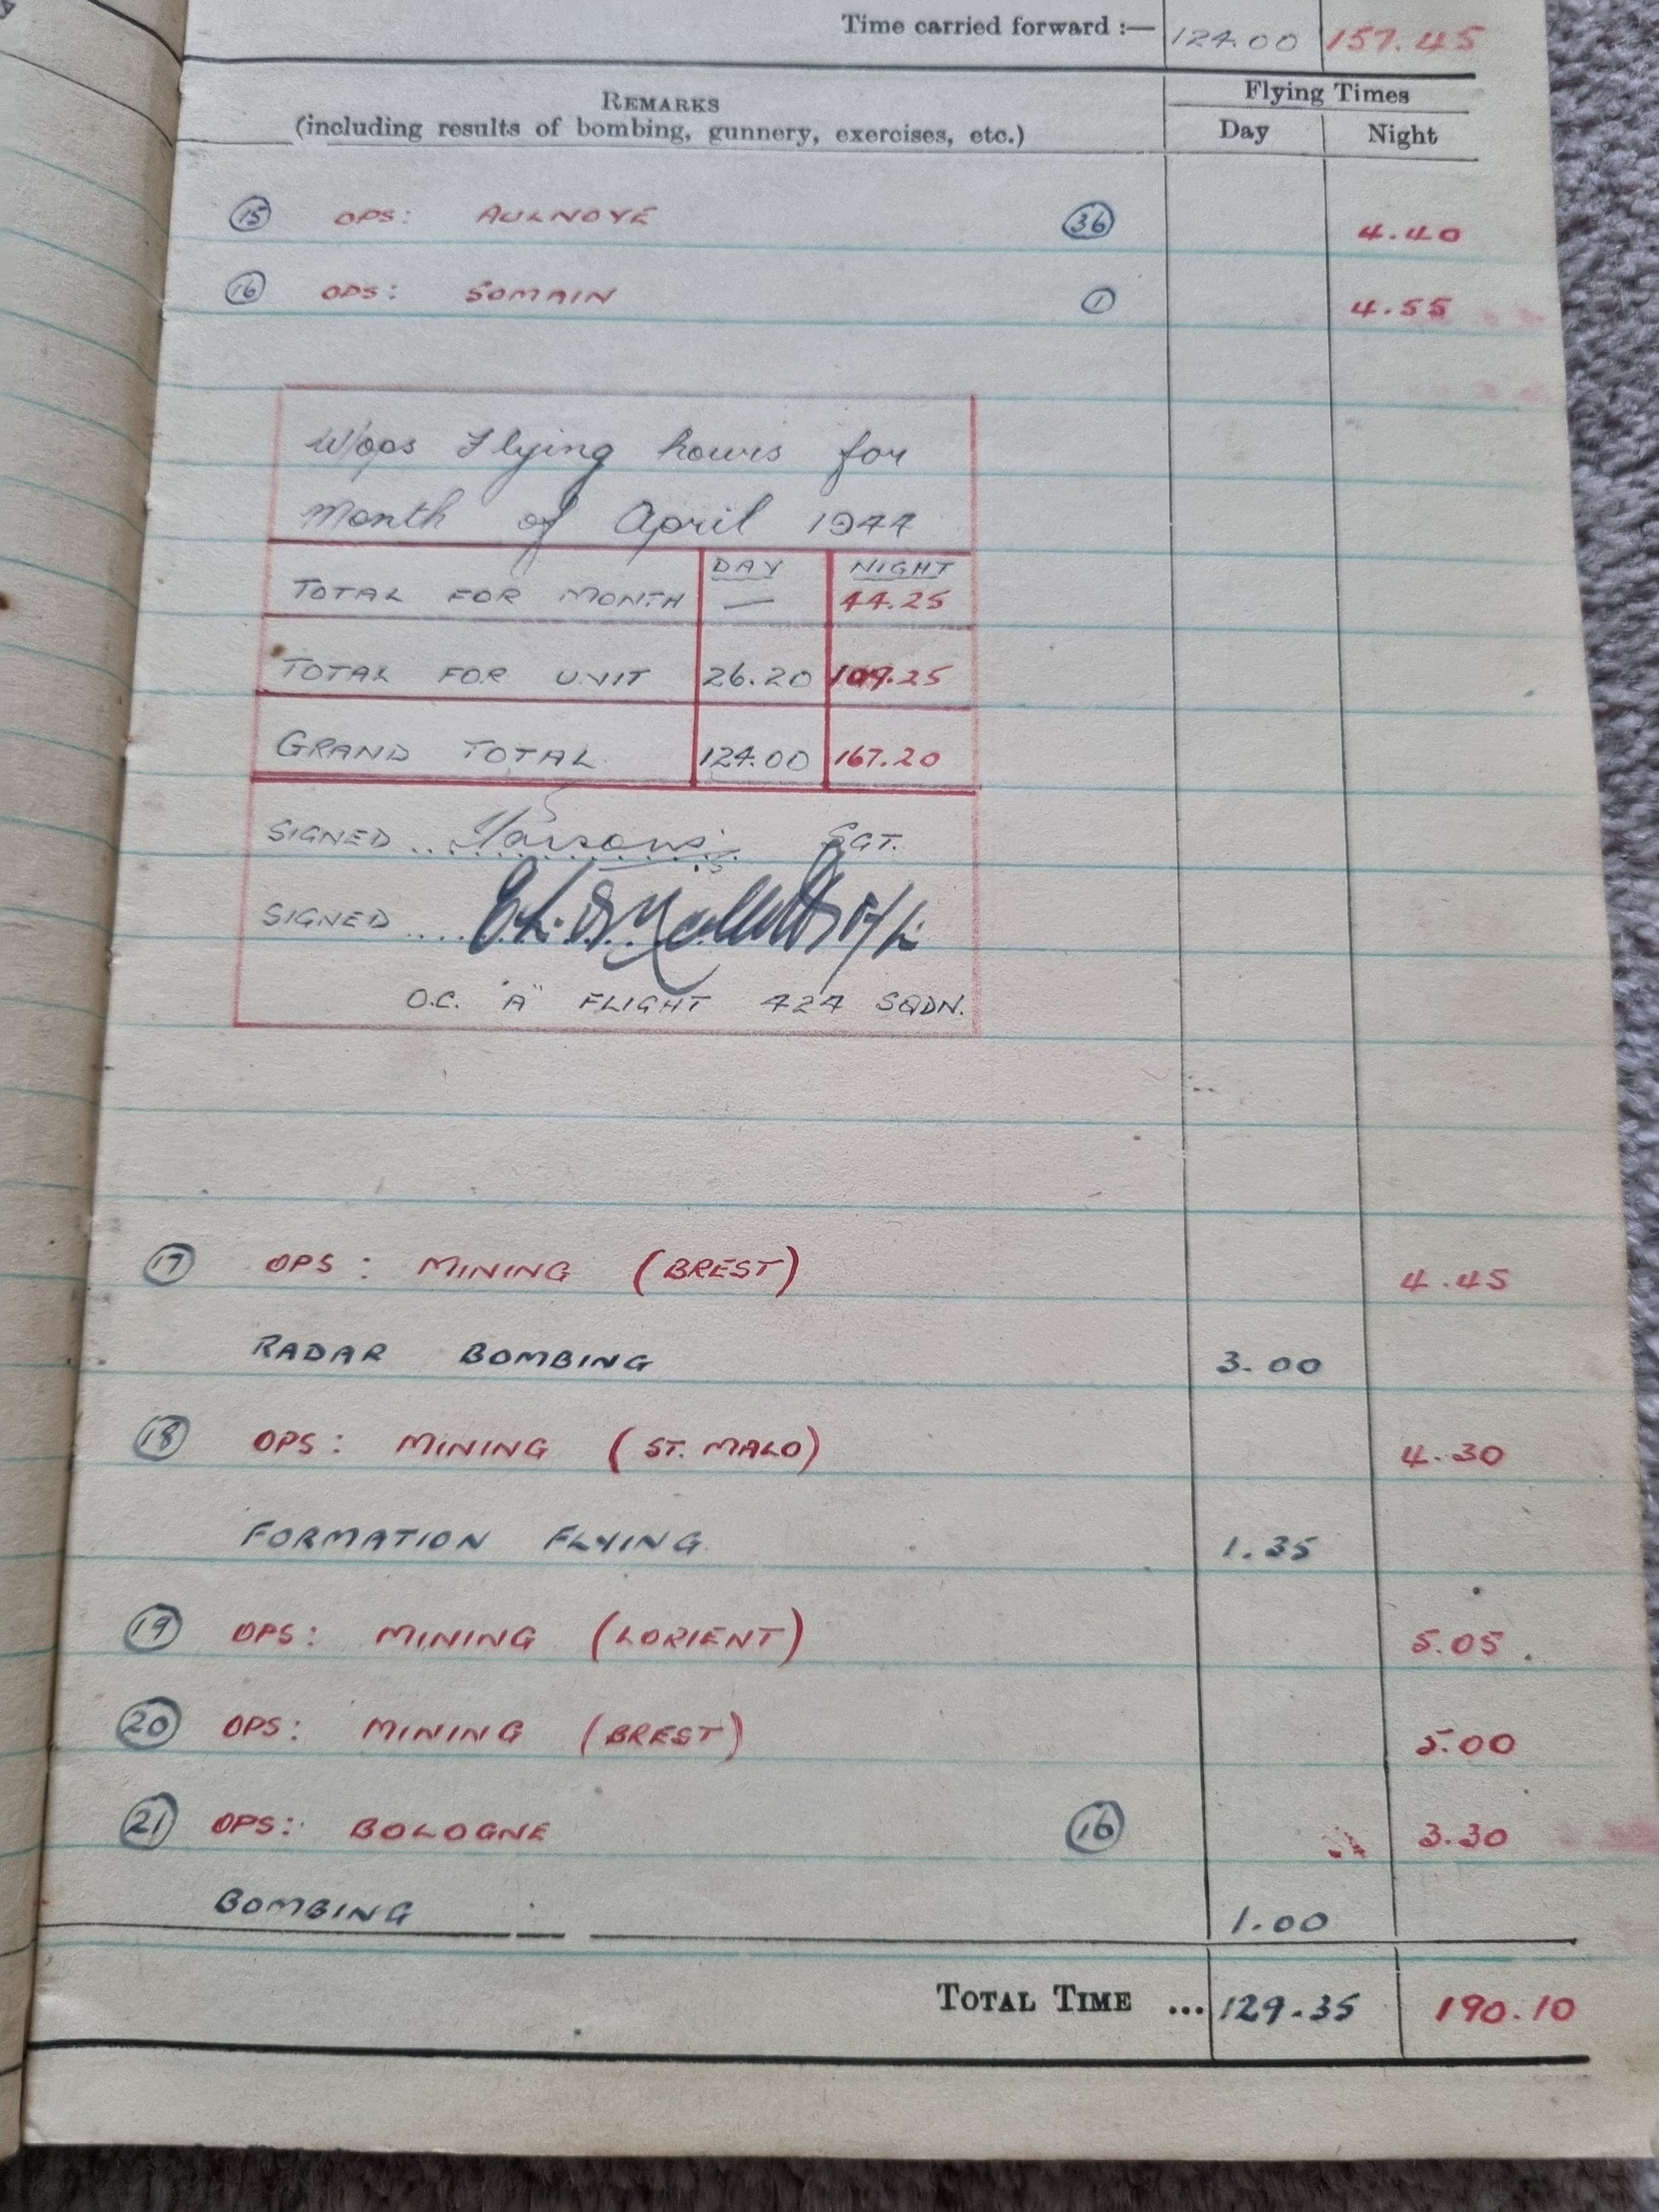 Time carried forward :— 124.00 157.45
REMARKS
(including results of bombing, gunnery, exercises, etc.)
Flying Times
Day Night
15 OPS: AULNOYE 36 4.40
16 OPS: SOMAIN 1 4.55
W/ops Flying hours for
Month of April 1944
DAY NIGHT
TOTAL FOR MONTH — 44.25
TOTAL FOR UNIT 26.20 109.25
GRAND TOTAL 124.00 167.20
SIGNED .. Parsons SGT.
SIGNED ....
O.C. "A" FLIGHT 424 SQDN.
17 OPS: MINING (BREST) 4.45
RADAR BOMBING 3.00
18 OPS: MINING (ST. MALO) 4.30
FORMATION FLYING 1.35
19 OPS: MINING (LORIENT) 5.05
20 OPS: MINING (BREST) 5.00
21 OPS: BOLOGNE 16 3.30
BOMBING 1.00
TOTAL TIME ... 129.35 190.10